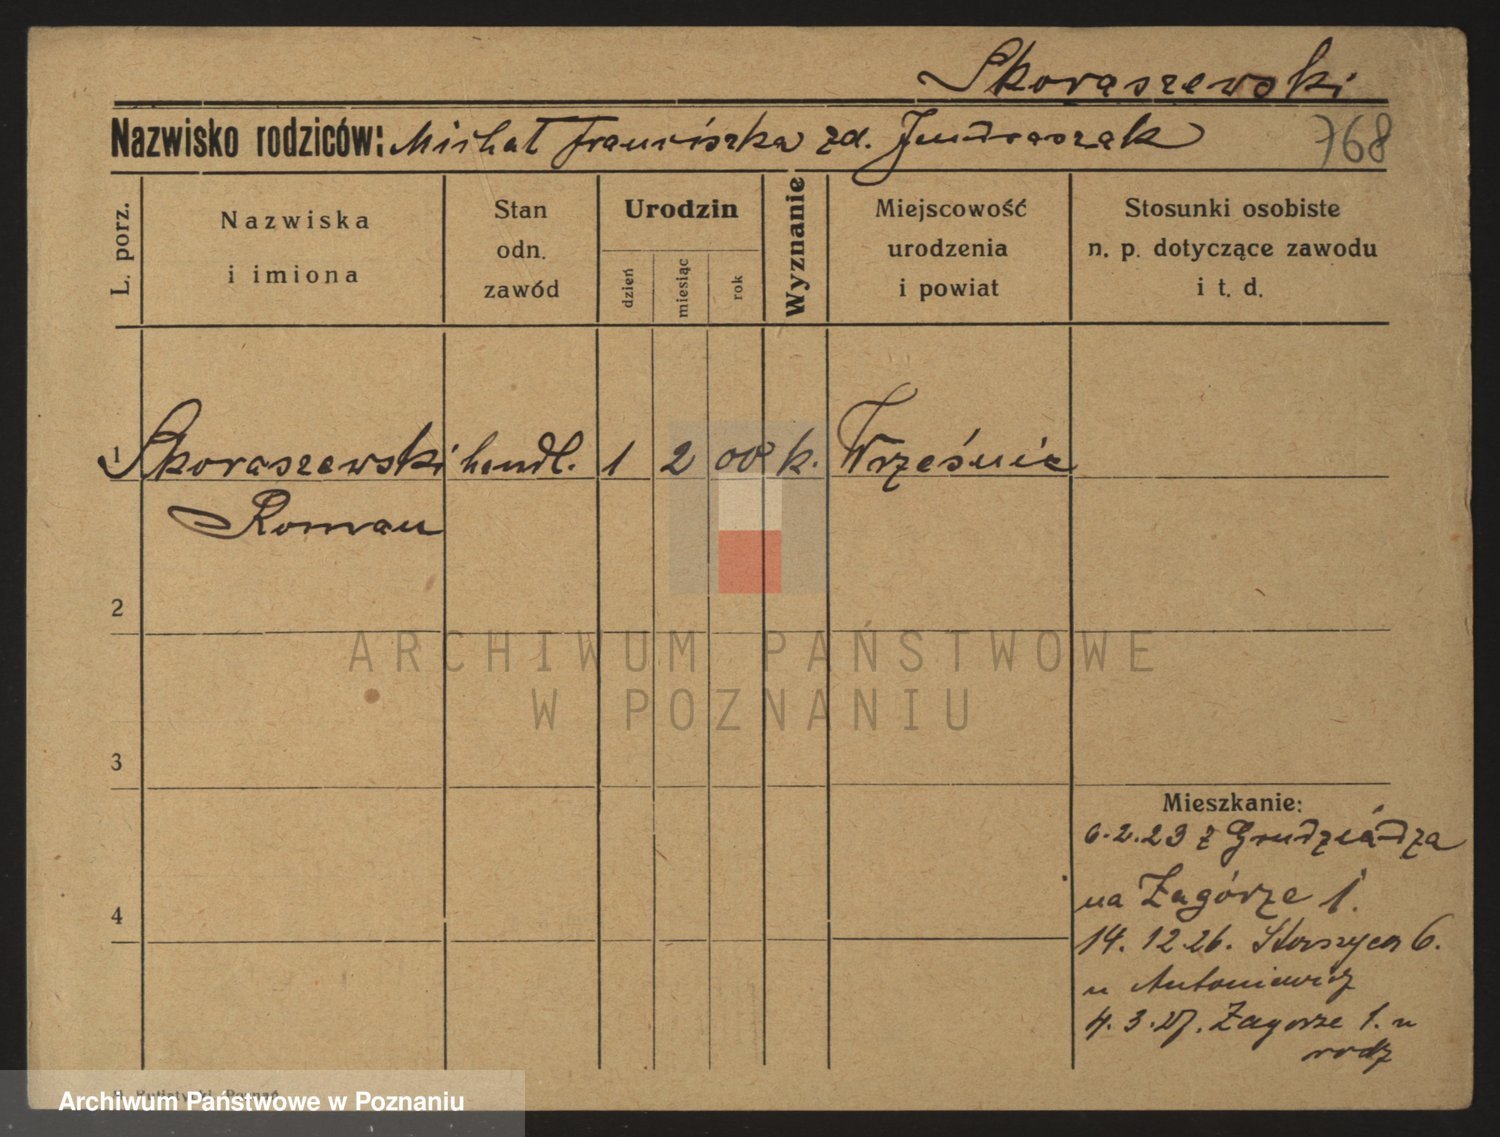 Skoraszewski
Nazwisko rodziców: Michał Franciszka zd. Jendraszak 768
L. porz.
Nazwiska
i imiona
Stan
odn.
zawód
Urodzin
dzień
miesiąc
rok
Wyznanie
Miejscowość
urodzenia
i powiat
Stosunki osobiste
n. p. dotyczące zawodu
i t. d.
1 Skoraszewski handl. 1 2 00 k. Wrześnie
Roman
2
3
4
Mieszkanie:
6.2.23 z Grudziądza
na Zagórze 1.
14. 12.26. 6.
u Antoniewicz
4.3.27. Zagorze 1. u
rodz
ARCHIWUM PAŃSTWOWE
W POZNANIU
Archiwum Państwowe w Poznaniu